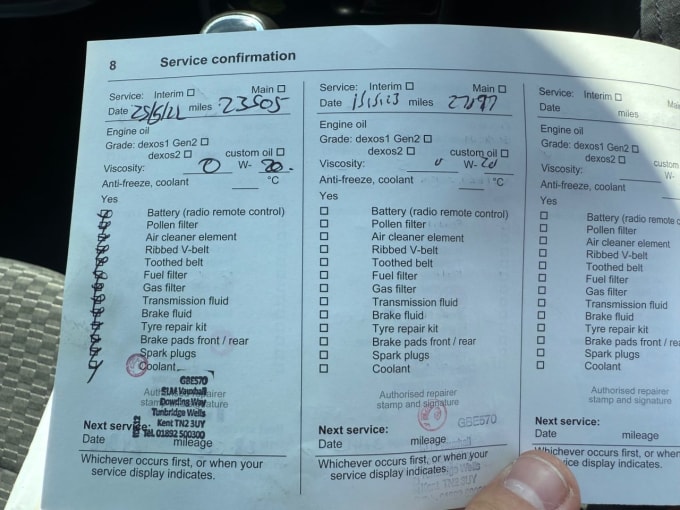 8 Service confirmation
Service: Interim Main
Date 25/5/22 miles 23505
Engine oil
Grade: dexos1 Gen2
dexos2 custom oil
Viscosity: 0 W- 20.
Anti-freeze, coolant °C
Yes
Battery (radio remote control)
Pollen filter
Air cleaner element
Ribbed V-belt
Toothed belt
Fuel filter
Gas filter
Transmission fluid
Brake fluid
Tyre repair kit
Brake pads front / rear
Spark plugs
Coolant
Authorised repairer
stamp and signature
GBE570
SLM Vauxhall
Dowding Way
Tunbridge Wells
Kent TN2 3UY
Tel. 01892 500300
Next service:
Date mileage
Whichever occurs first, or when your
service display indicates.
Service: Interim Main
Date miles
Engine oil
Grade: dexos1 Gen2
dexos2 custom oil
Viscosity: 0 W- 20
Anti-freeze, coolant °C
Yes
Battery (radio remote control)
Pollen filter
Air cleaner element
Ribbed V-belt
Toothed belt
Fuel filter
Gas filter
Transmission fluid
Brake fluid
Tyre repair kit
Brake pads front / rear
Spark plugs
Coolant
Authorised repairer
stamp and signature
GBE570
Next service:
Date mileage
Whichever occurs first, or when your
service display indicates.
Wells
TN2 3UY
Service: Interim
Date miles
Engine oil
Grade: dexos1 Gen2
dexos2 custom
Viscosity: W-
Anti-freeze, coolant
Yes
Battery (radio remote
Pollen filter
Air cleaner element
Ribbed V-belt
Toothed belt
Fuel filter
Gas filter
Transmission fluid
Brake fluid
Tyre repair kit
Brake pads front / rea
Spark plugs
Coolant
Authorised
stamp and
Next service:
Date mileage
occurs first, or when
display indicates.